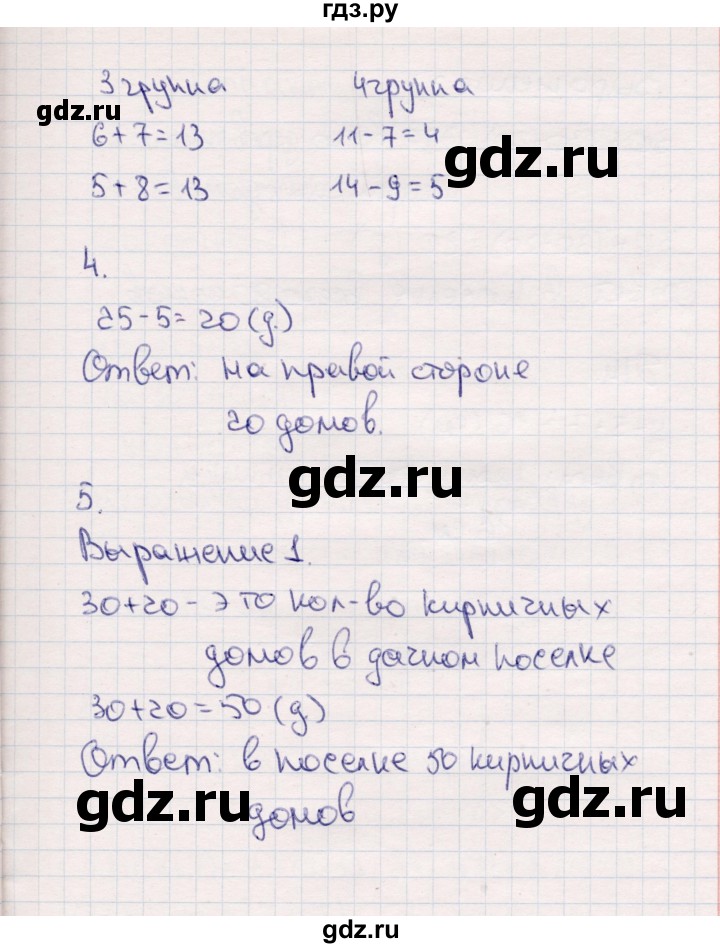 гдз.ру
3 группа 4 группа
gdz.ru
6+7=13 11-7=4
gdz.ru
5+8=13 14-9=5
4.
25-5=20 (д.)
Ответ: на правой стороне
20 домов.
gdz.ru
5.
Выражение 1.
30+20 - это кол-во кирпичных
домов в дачном поселке
30+20=50 (д.)
Ответ: в поселке 50 кирпичных
gdz.ru домов gdz.ru
gdz.ru